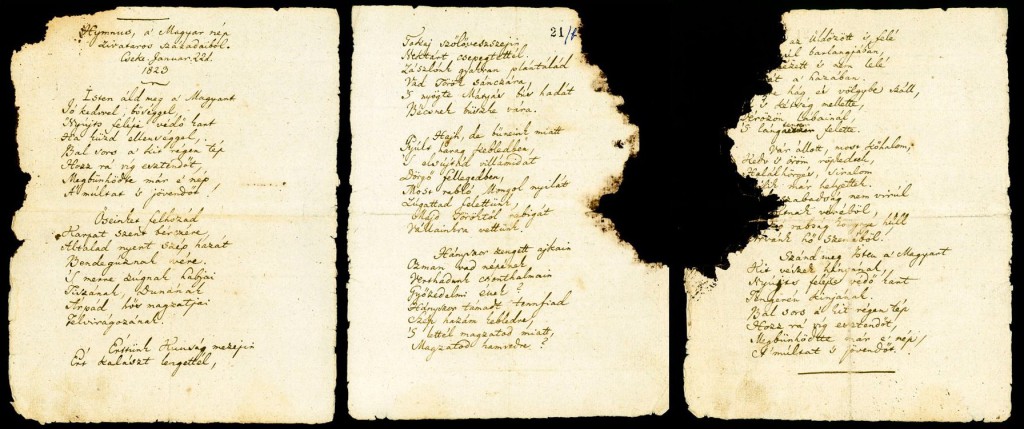 Hymnus, a' Magyar nép
zivataros századaiból.
Cseke Januar. 22d.
1823
Isten áld meg a' Magyart
Jó kedvvel, bőséggel,
Nyújts feléje védő kart
Ha küzd ellenséggel;
Bal sors a' kit régen tép
Hozz rá víg esztendőt,
Megbűnhődte már e' nép
A' múltat 's jövendőt!
Őseinket felhozád
Kárpát szent bérczére,
Általad nyert szép hazát
Bendegúznak vére.
'S merre zúgnak habjai
Tiszának, Dunának,
Árpád hős magzatjai
Felvirágozának.
Értünk Kunság mezejin
Ért kalászt lengettél,
21/
Tokaj szőlővesszejin
Nektárt csepegtettél.
Zászlónk gyakran plántálád
Vad Török sánczára,
'S nyögte Mátyás bús hadát
Bécsnek büszke vára.
Hajh, de bűneink miatt
Gyúlt harag kebledben,
'S elsújtád villámidat
Dörgő fellegedben,
Most rabló Mongol nyilát
Zúgattad felettünk,
Majd Töröktől rabigát
Vállainkra vettünk.
Hányszor zengett ajkain
Ozman vad népének
Vert hadunk csonthalmain
Győzedelmi ének!
Hányszor támadt tennfiad
Szép hazám kebledre,
'S lettél magzatod miatt
Magzatod hamvvedre?
Üldözött 's felé
barlangjában,
's nem lelé
a' hazában.
hág és völgybe száll,
's kétség mellette,
Vérözön lábainál,
'S lángtenger felette.
Vár állott, most kőhalom;
Kedv 's öröm röpkedtek,
Halálhörgés, siralom
már helyettek.
szabadság nem virúl
véréből,
rabság könnye hull
Árvánk hő szeméből.
Szánd meg Isten a' Magyart
Kit vészek hányanak,
Nyújts feléje védő kart
Tengerén kínjának.
Bal sors a' kit régen tép
Hozz rá víg esztendőt,
Megbűnhődte már e' nép
A' múltat 's jövendőt.